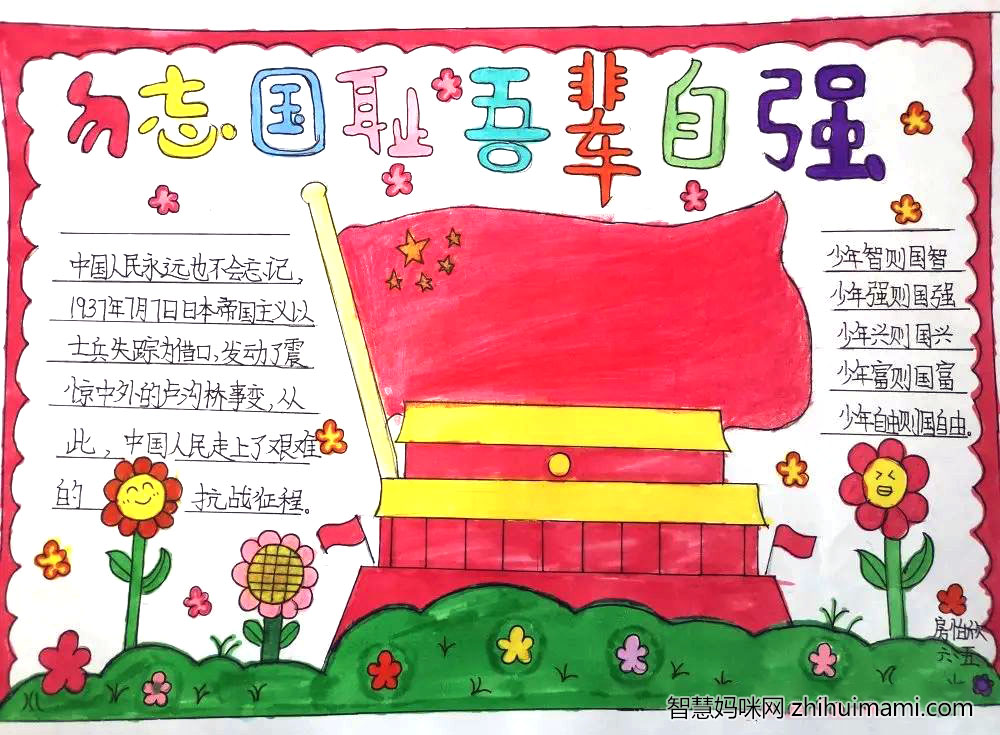 勿忘国耻吾辈自强
中国人民永远也不会忘记，
1937年7月7日日本帝国主义以
士兵失踪为借口，发动了震
惊中外的卢沟桥事变，从
此，中国人民走上了艰难
的 抗战征程。
少年智则国智
少年强则国强
少年兴则国兴
少年富则国富
少年自由则国自由。
房怡欣
六、五
智慧妈咪网 zhihuimami.com